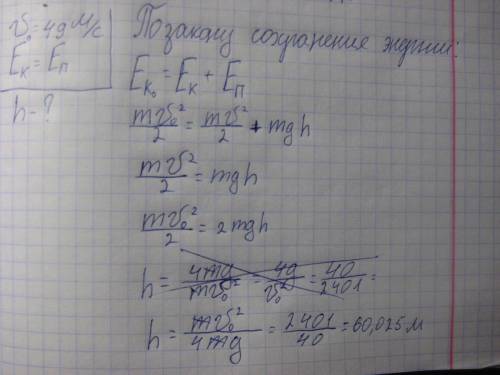 υ₀ = 49 м/с
Eк = Eп
h - ?
По закону сохранение энергии:
Eк₀ = Eк + Eп
mυ₀²/2 = mυ²/2 + mgh
mυ²/2 = mgh
mυ₀²/2 = 2mgh
h = 4mg/mυ₀² = 4g/υ₀² = 40/2401 =
h = mυ₀²/4mg = 2401/40 = 60,025 м